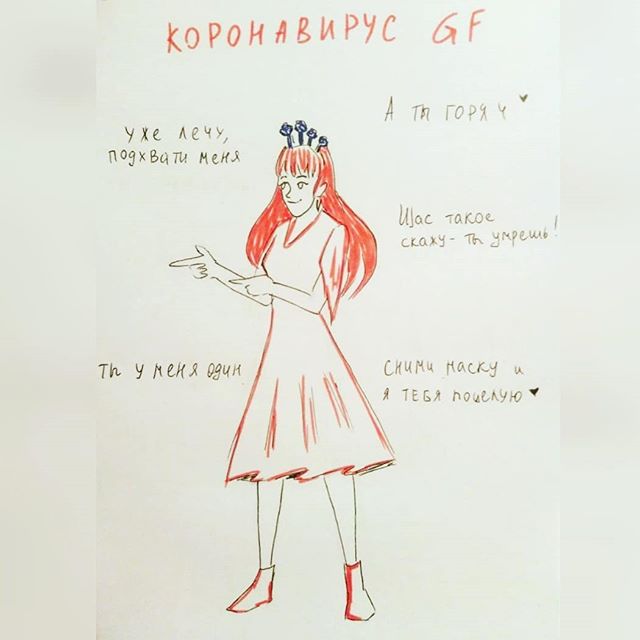 КОРОНАВИРУС GF
А ТЫ ГОРЯЧ ♥
УЖЕ ЛЕЧУ,
ПОДХВАТИ МЕНЯ
Щас такое
скажу - ты умрешь!
ТЫ У МЕНЯ ОДИН
СНИМИ МАСКУ И
Я ТЕБЯ ПОЦЕЛУЮ ♥